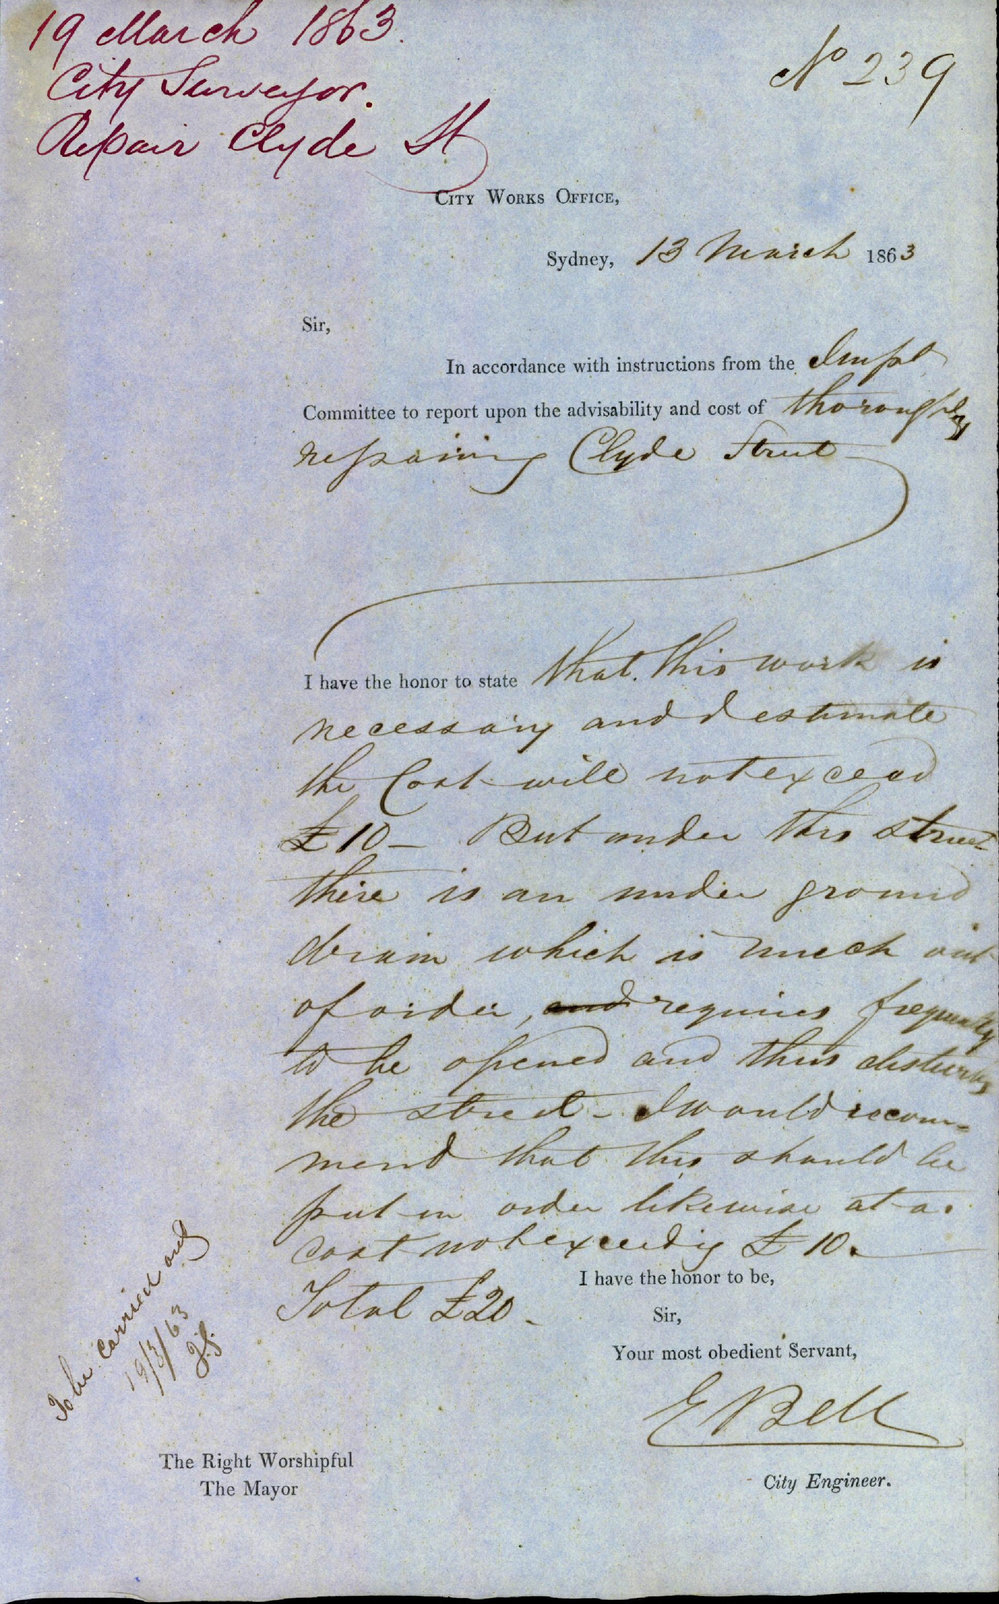 19 March 1863.
City Surveyor.
Repair Clyde St
No 239
CITY WORKS OFFICE,
Sydney, 13 March 1863
Sir,
In accordance with instructions from the Impt
Committee to report upon the advisability and cost of thoroughly
repairing Clyde Street
I have the honor to state that this work is
necessary and I estimate
the Cost will not exceed
£10 — But under this street
there is an under ground
drain which is much out
of order, and requires frequently
to be opened and thus disturbing
the street – I would recom=
mend that this should be
put in order likewise at a
cost not exceeding £10.
Total £20 –
I have the honor to be,
Sir,
Your most obedient Servant,
E Bell
City Engineer.
To be carried out
19/3/63
The Right Worshipful
The Mayor